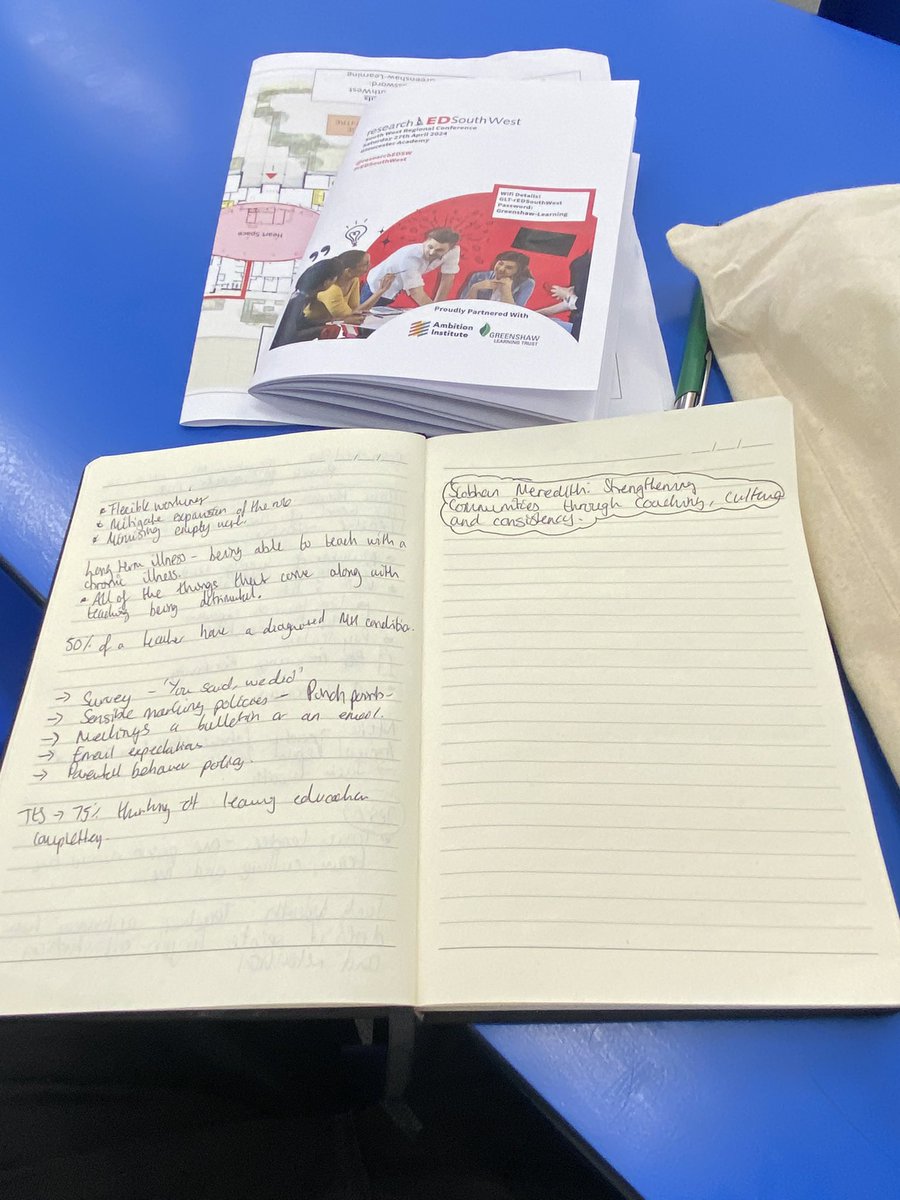 researchED SouthWest
South West Regional Conference
Saturday 27th April 2024
Gloucester Academy
@researchEDSW
#rEDSouthWest
Wifi Details:
GLT-rEDSouthWest
Password:
Greenshaw-Learning
Proudly Partnered With
Ambition
Institute
GREENSHAW
LEARNING TRUST
Heart Space
Greenshaw-Learning
• Flexible working
• Mitigate expansion of the role
• Minising empty work.
Long term illness - being able to teach with a
chronic illness.
• All of the things that come along with
teaching being detrimental.
50% of a teacher have a diagnosed MH condition.
→ Survey - 'You said, we did'
→ Sensible marking policies - Pinch points-
→ Meetings a bulletin or an email.
→ Email expectations
→ Parental behaviour policy.
TES → 75% thinking of leaving education
completley.
Siobhan Meredith: Strengthening
Communities through Coaching, Culture
and consistency.